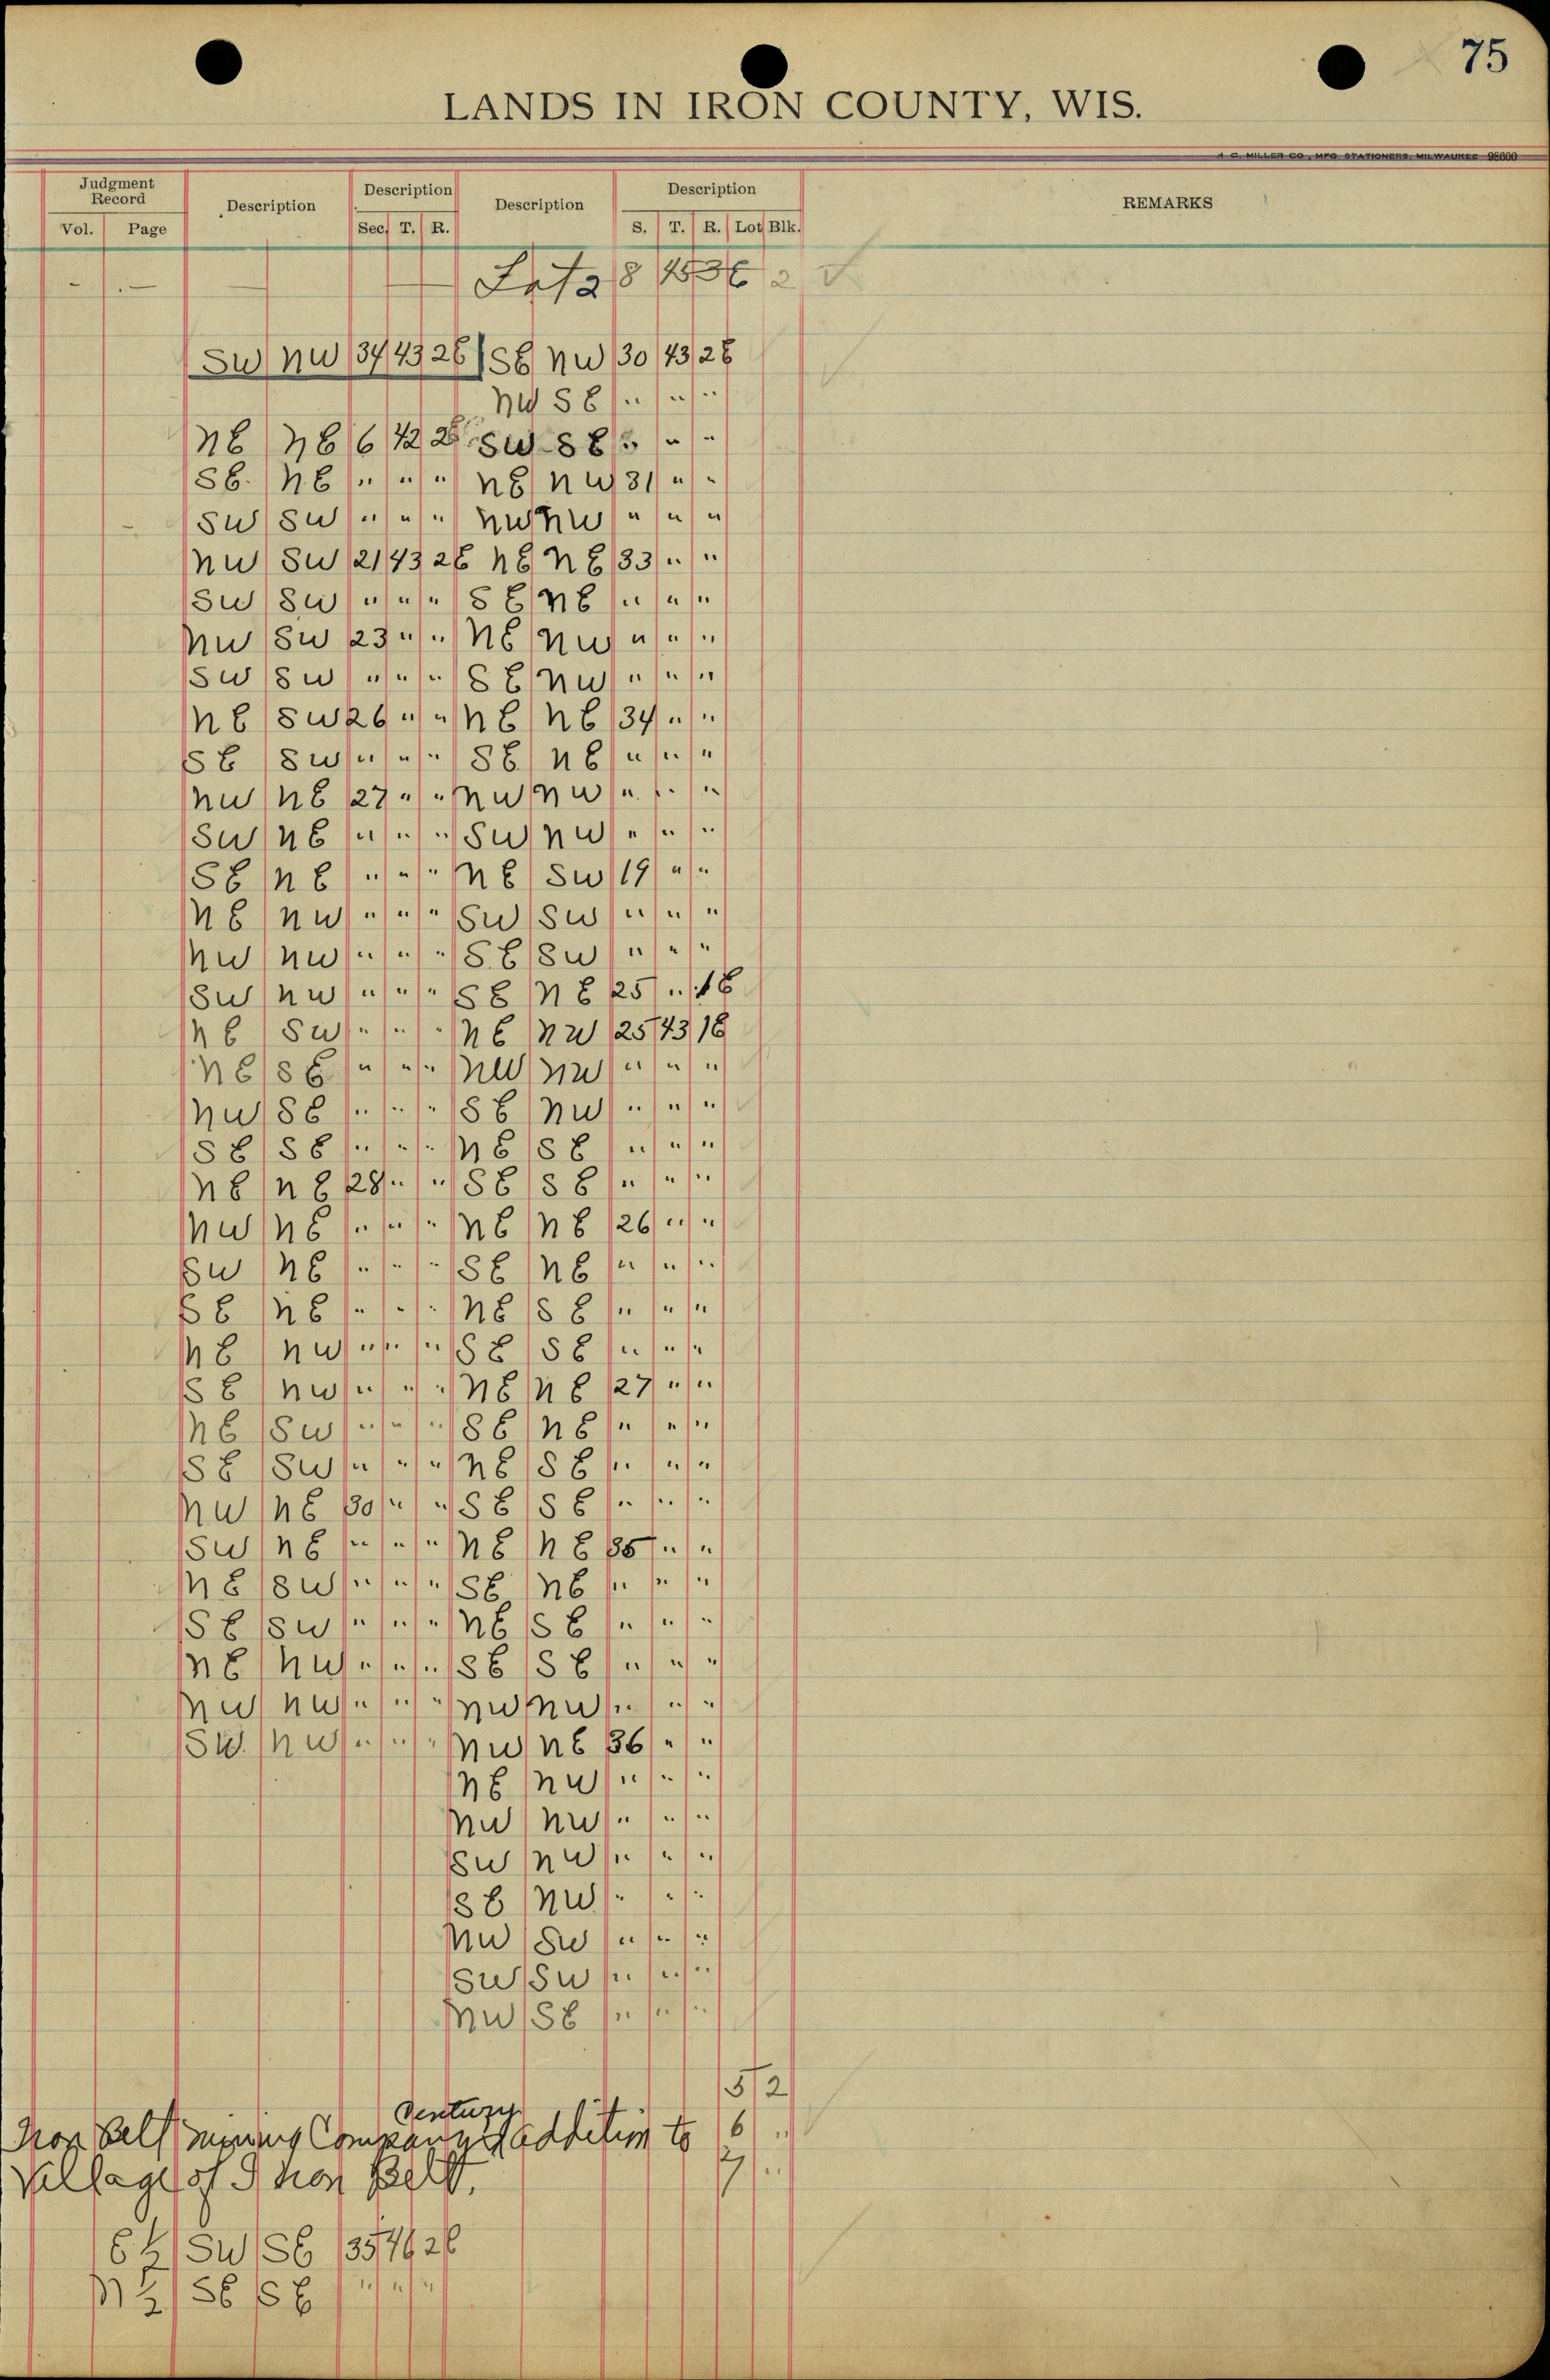 75
LANDS IN IRON COUNTY, WIS.
H. C. MILLER CO., MFG. STATIONERS, MILWAUKEE 98600
Judgment Record Description Description Description Description REMARKS
Vol. Page Sec. T. R. S. T. R. Lot Blk.
- . — Lot 2 8 45 3E 2
SW NW 34 43 2E SE NW 30 43 2E
NW SE " " "
NE NE 6 42 2E SW SE " " "
SE NE " " " NE NW 31 " "
SW SW " " " NW NW " " "
NW SW 21 43 2E NE NE 33 " "
SW SW " " " SE NE " " "
NW SW 23 " " NE NW " " "
SW SW " " " SE NW " " "
NE SW 26 " " NE NE 34 " "
SE SW " " " SE NE " " "
NW NE 27 " " NW NW " " "
SW NE " " " SW NW " " "
SE NE " " " NE SW 19 " "
NE NW " " " SW SW " " "
NW NW " " " SE SW " " "
SW NW " " " SE NE 25 " 1E
NE SW " " " NE NW 25 43 1E
NE SE " " " NW NW " " "
NW SE " " " SE NW " " "
SE SE " " " NE SE " " "
NE NE 28 " " SE SE " " "
NW NE " " " NE NE 26 " "
SW NE " " " SE NE " " "
SE NE " " " NE SE " " "
NE NW " " " SE SE " " "
SE NW " " " NE NE 27 " "
NE SW " " " SE NE " " "
SE SW " " " NE SE " " "
NW NE 30 " " SE SE " " "
SW NE " " " NE NE 35 " "
NE SW " " " SE NE " " "
SE SW " " " NE SE " " "
NE NW " " " SE SE " " "
NW NW " " " NW NW " " "
SW NW " " " NW NE 36 " "
NE NW " " "
NW NW " " "
SW NW " " "
SE NW " " "
NW SW " " "
SW SW " " "
NW SE " " "
5 2
Century
Iron Belt Mining Company's addition to 6 "
Village of Iron Belt. 7 "
E ½ SW SE 35 46 2E
N ½ SE SE " " "